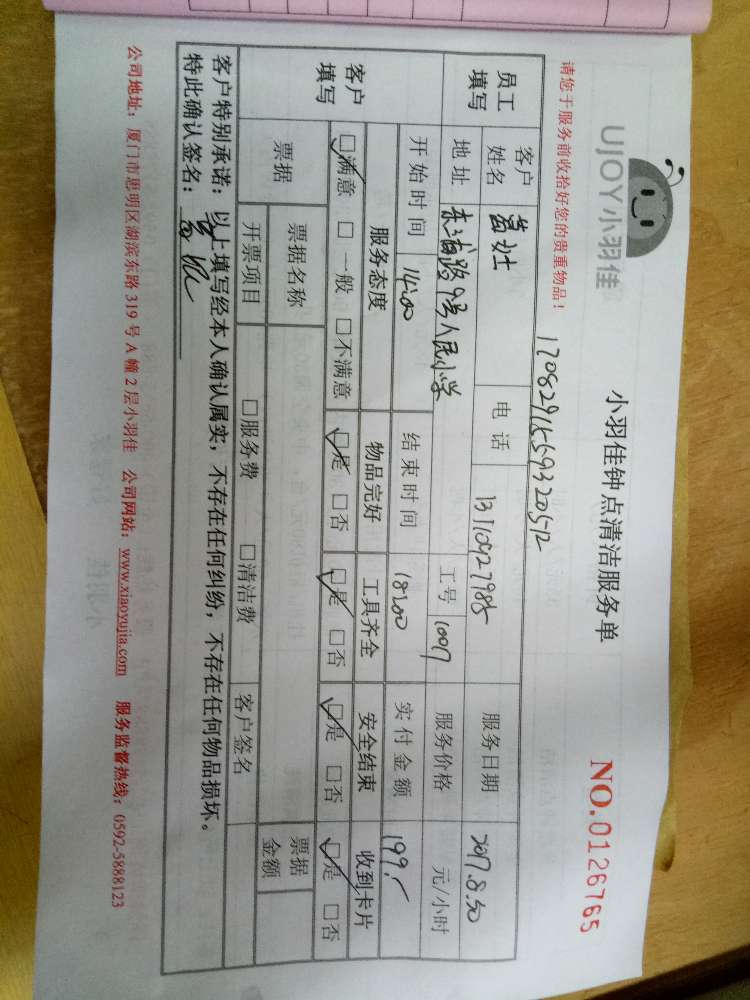 UJOY小羽佳
小羽佳钟点清洁服务单
NO.0126765
请您于服务前收拾好您的贵重物品！
员工填写
客户姓名
电话
1311092798
服务日期
2017.8.30
地址
东浦路9号人民小学
工号
1007
服务价格
元/小时
开始时间
14:00
结束时间
18:00
实付金额
199.
客户填写
服务态度
物品完好
工具齐全
安全结束
收到卡片
☑满意 □一般 □不满意
☑是 □否
☑是 □否
☑是 □否
☑是 □否
票据
票据名称
票据金额
开票项目
□服务费
□清洁费
客户签名
客户特别承诺：以上填写经本人确认属实，不存在任何纠纷，不存在任何物品损坏。
特此确认签名：
公司地址：厦门市思明区湖滨东路 319 号 A 幢 2 层小羽佳 公司网站：www.xiaoyujia.com 服务监督热线：0592-5888123